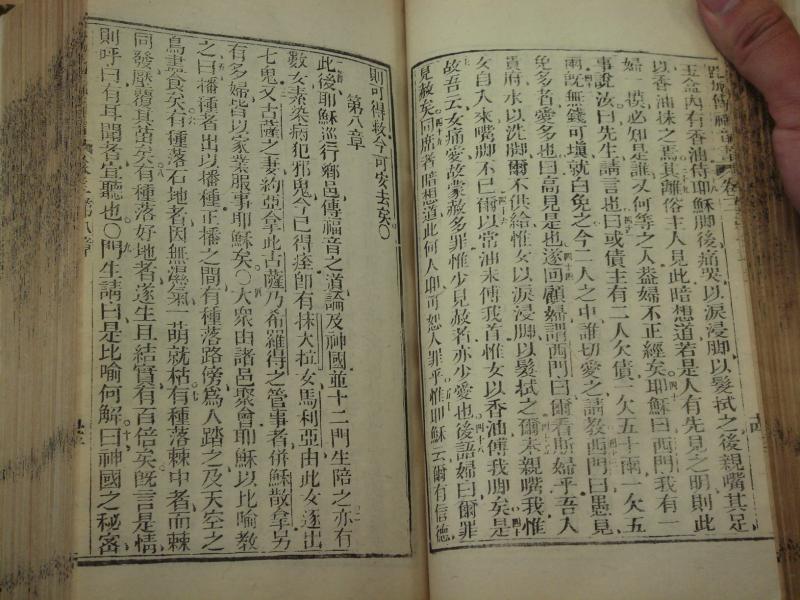 玉盒內有香油侍耶穌脚後痛哭以淚浸脚以髮拭之後親嘴其足
以香油抹之焉其離俗主人見此暗想道若是人有先見之明則此
婦摸必知是誰又何等之人蓋婦不正經矣耶穌曰西門我有一
事說汝曰先生請言也曰或債主有二人欠債一欠五十兩一欠五
兩既無錢可塡就白免之今二人之中誰切愛之請敎西門曰愚見
免多者愛多也曰高見是也遂回顧婦謂西門曰爾看斯婦乎吾人
貴府水以洗脚爾不供給惟女以淚浸脚以髮拭之爾未親嘴我惟
女自入來嘴脚不已爾以常油未傅我首惟女以香油傅我脚矣是
故吾云女痛愛故蒙赦多罪惟少見赦者亦少愛也後語婦曰爾罪
見赦矣同席者暗想道此何人卽可恕人罪乎惟耶穌云爾有信德
則可得救今可安去矣○
第八章
此後耶穌巡行鄉邑傳福音之道論及神國並十二門生陪之亦有
數女素染病犯邪鬼今已得痊卽有抹大拉女馬利亞由此女逐出
七鬼又古薩之妻約亞拿此古薩乃希羅得之管事者併穌散拿另
有多婦皆以家業服事耶穌矣○大衆由諸邑聚會耶穌以比喻敎
之曰播種者出以播種正播之間有種落路傍爲人踏之及天空之
鳥盡食矣有種落石地者因無濕氣一萌就枯有種落棘中者而棘
同發壓覆其苗矣有種落好地者遂生且結實有百倍矣旣言是情
則呼曰有耳聞者宜聽也○門生請曰是比喻何解曰神國之秘密
第八章